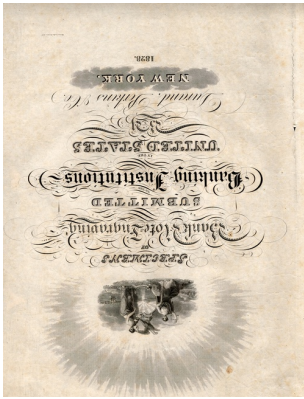 SPECIMENS
OF
Bank Note Engraving,
SUBMITTED
Banking Institutions
UNITED STATES
By
Durand, Perkins & Co.
NEW YORK.
1828.